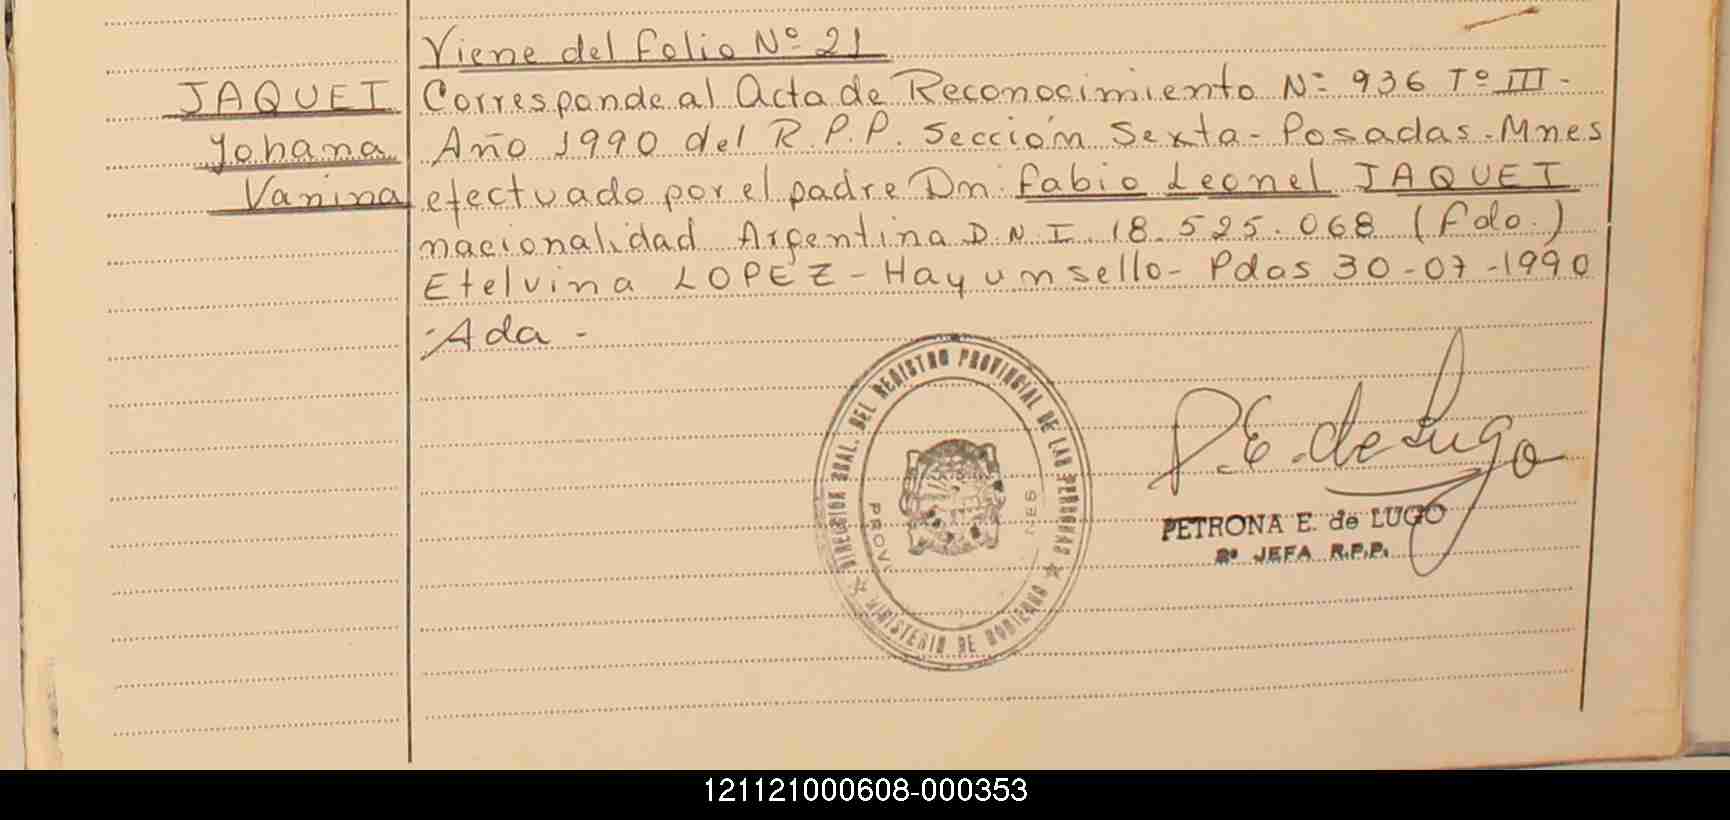 Viene del folio Nº 21
JAQUET Corresponde al Acta de Reconocimiento Nº 936 Tº III-
Yohana Año 1990 del R.P.P. Sección Sexta-Posadas-Mnes
Vanina efectuado por el padre Dn. Fabio Leonel JAQUET
nacionalidad Argentina D.N.I. 18.525.068 (fdo.)
Etelvina LOPEZ - Hay un sello - Pdas 30-07-1990
-Ada-
DIRECCION GRAL. DEL REGISTRO PROVINCIAL DE LAS PERSONAS
MINISTERIO DE GOBIERNO
P.E. de Lugo
PETRONA E. de LUGO
2º JEFA R.P.P.
121121000608-000353